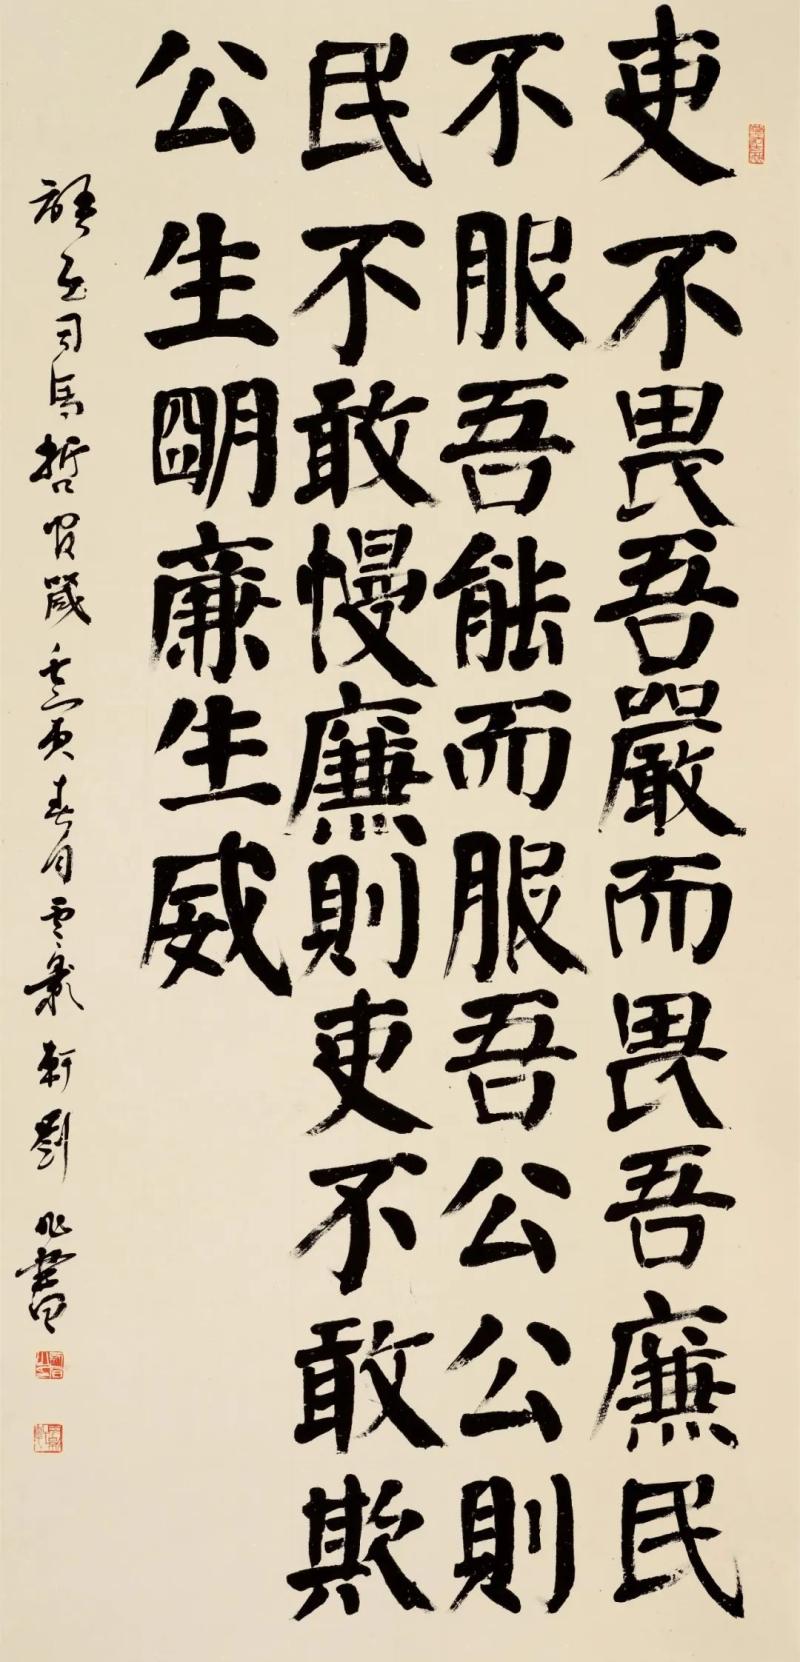 吏不畏吾嚴而畏吾廉民
不服吾能而服吾公公則
民不敢慢廉則吏不敢欺
公生朙廉生威
語司馬哲官箴壬寅春月雲軒劉書